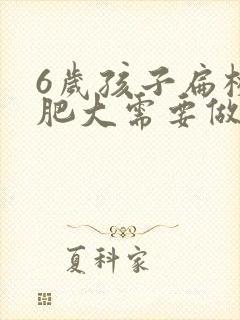 6歲孩子扁桃
肥大需要做
夏科家